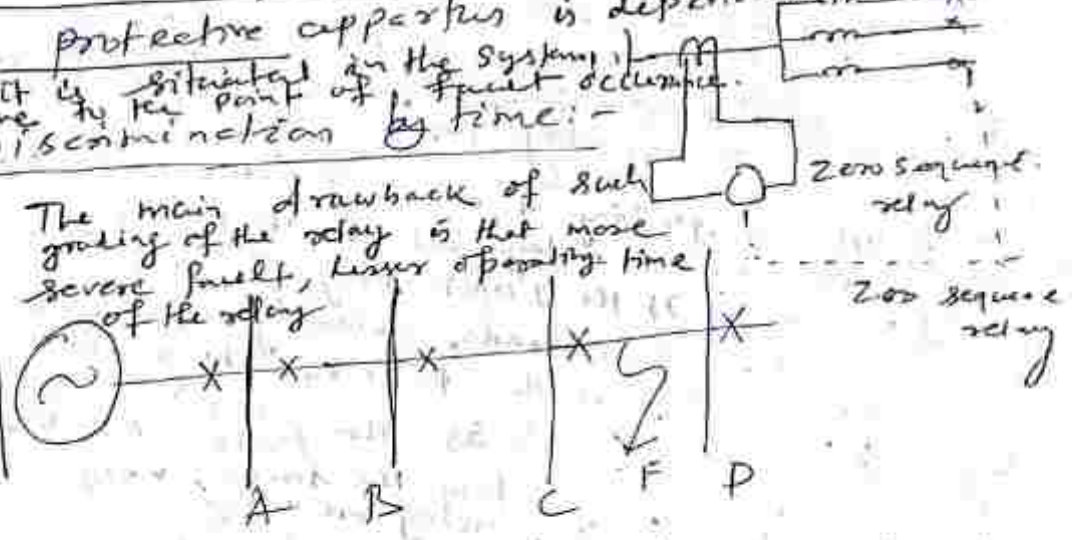 protective appartus is
It is situated in the system,
to the point of fault occurance.
iscrimination by time:-
The main drawback of such
grading of the relay is that more
severe fault, lesser operating time
of the relay
Zero sequence
relay
Zero sequence
relay
A B C F D